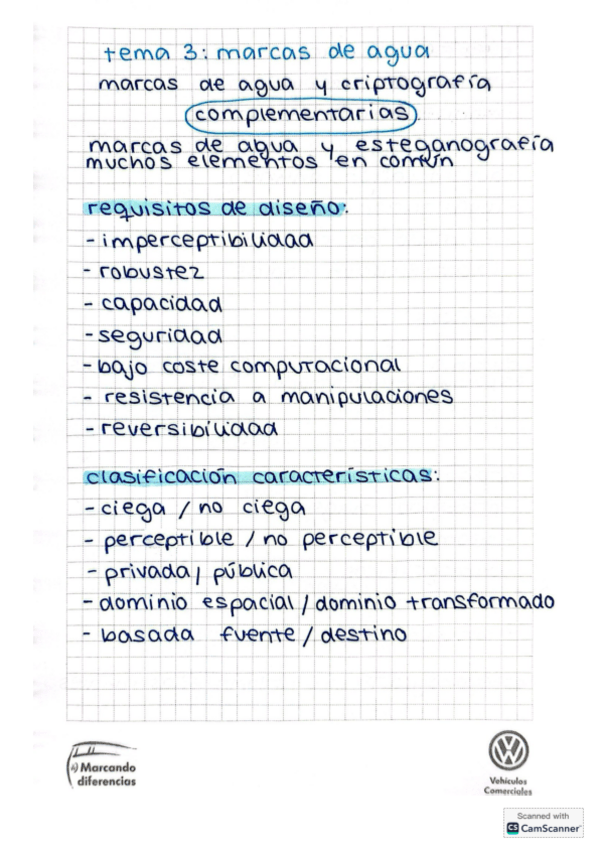 tema 3: marcas de agua
marcas de agua y criptografía
complementarias
marcas de agua y esteganografía
muchos elementos en común
requisitos de diseño:
- imperceptibilidad
- robustez
- capacidad
- seguridad
- bajo coste computacional
- resistencia a manipulaciones
- reversibilidad
clasificación características:
- ciega / no ciega
- perceptible / no perceptible
- privada / pública
- dominio espacial / dominio transformado
- basada fuente / destino
Marcando
diferencias
Vehículos
Comerciales
Scanned with
CS CamScanner